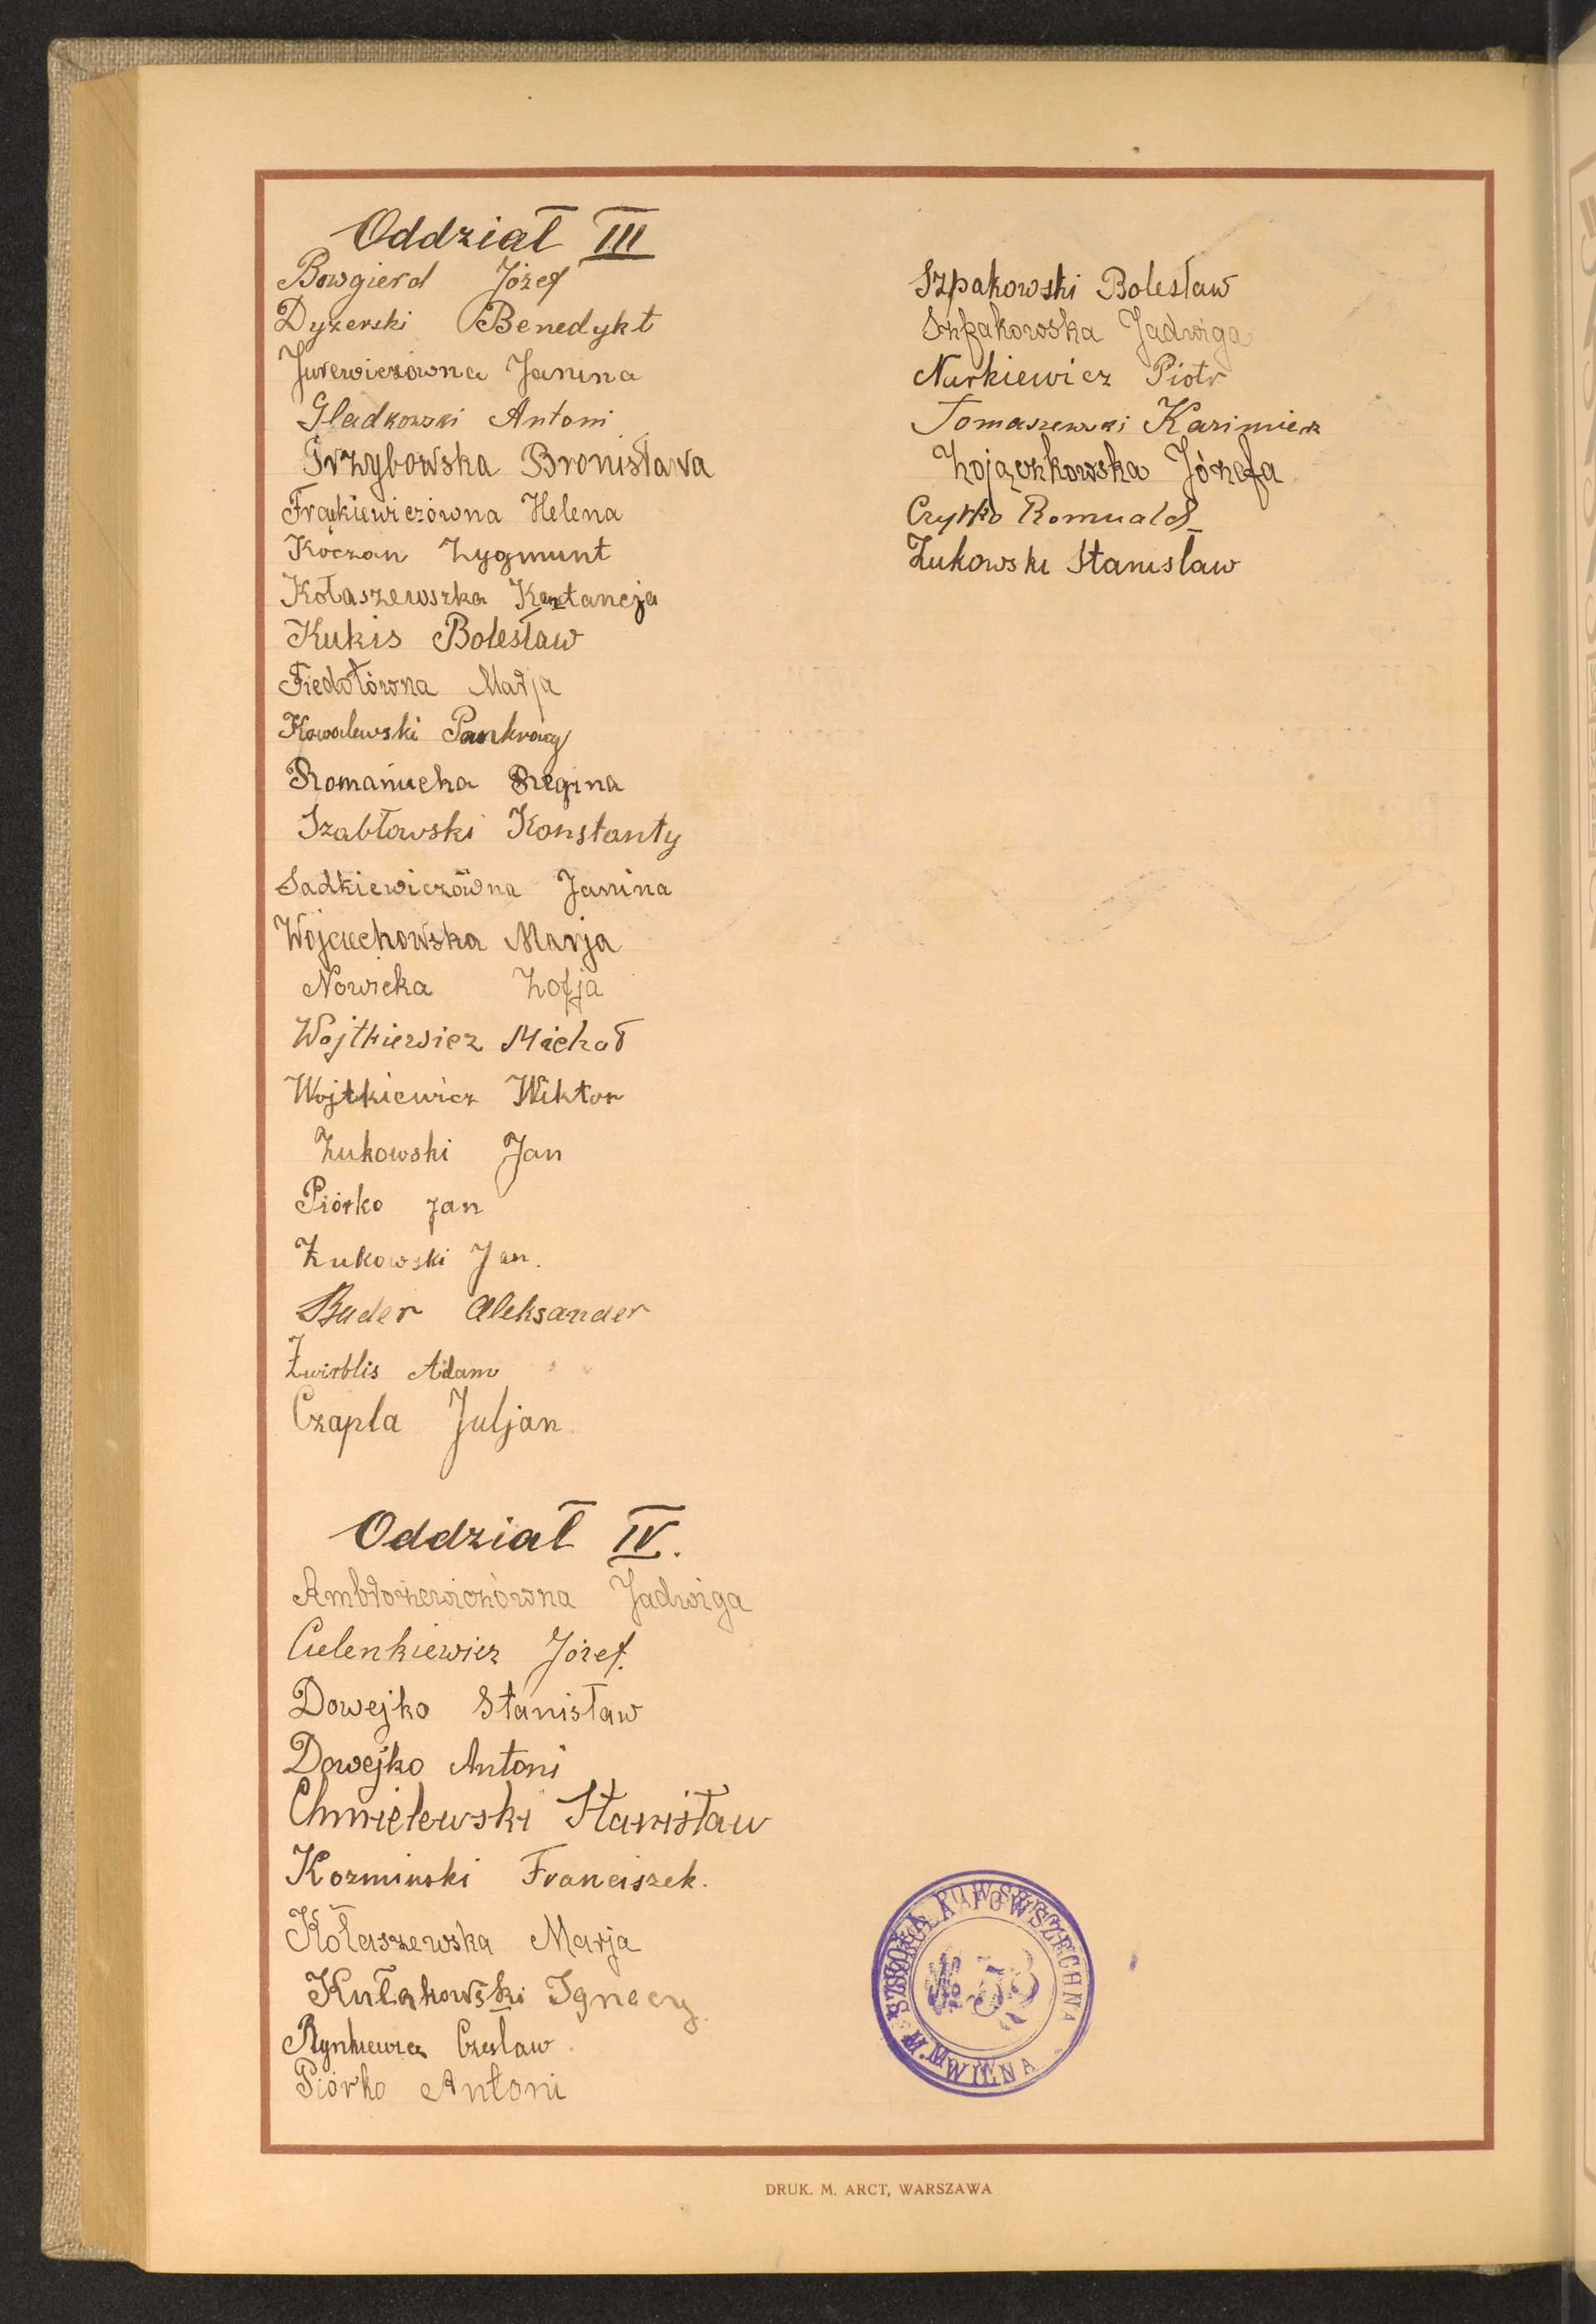 Oddział III
Bowgierd Józef
Dyzerski Benedykt
Jurewiczówna Janina
Gladkowski Antoni
Grzybowska Bronisława
Frąckiewiczówna Helena
Koczan Zygmunt
Kołaszewszka
Kukis Bolesław
Fiedotówna Marja
Kowalewski Pankracy
Romanucha Regina
Szabłowski Konstanty
Sadkiewiczówna Janina
Wojciechowska Marja
Nowicka Zofja
Wojtkiewicz Michał
Wojtkiewicz Wiktor
Żukowski Jan
Piórko Jan
Żukowski Jan.
Bader Aleksander
Żwirblis Adam
Czapla Juljan.
Szpakowski Bolesław
Szpakowska Jadwiga
Nurkiewicz Piotr
Tomaszewski Kazimierz
Zojączkowska Józefa
Czyrko Romuald
Żukowski Stanisław
Oddział IV.
Ambrożewiczówna Jadwiga
Culenkiewicz Józef.
Dowejko Stanisław
Dowejko Antoni
Chmielewski Stanisław
Kozminski Franciszek.
Kołaszewska Marja
Kułakowski Ignacy.
Rynkiewicz Czesław.
Piórko Antoni
SZKOŁA POWSZECHNA
№ 53
M. WILNA
DRUK. M. ARCT, WARSZAWA